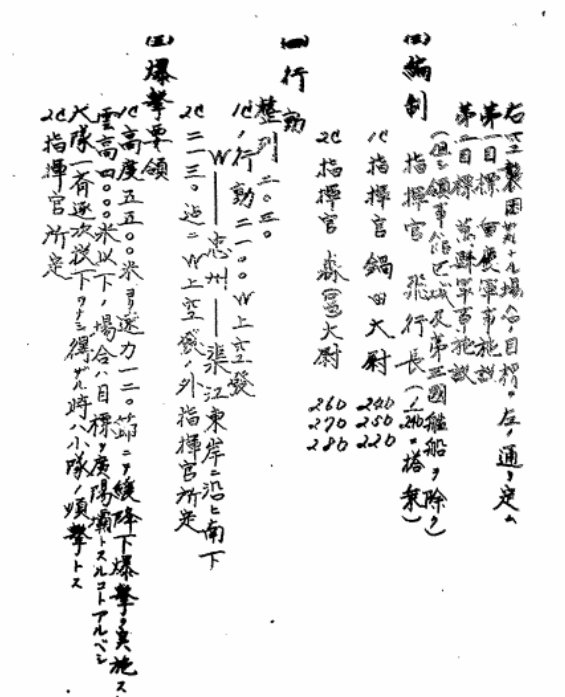 右空襲困難ナル場合ノ目標ヲ左ノ通リ定ム
第一目標 重慶軍事施設
第二目標 萬縣軍事施設
(但シ領事館区域及第三國艦船ヲ除ク)
編制 指揮官 飛行長(搭乗)
1C指揮官 鍋田大尉 240 250 220
2C指揮官 森冨大尉 260 270 280
(一)行動
整列 二〇三〇
1C 行動 二一〇〇W上空發
W――忠州――渠江東岸ニ沿ヒ南下
2C 二一三〇 W上空發 外指揮官所定
(三)爆撃要領
1C高度五五〇〇米ヨリ速力一二〇節ニテ緩降下爆撃ヲ実施ス
雲高四〇〇〇米以下ノ場合ハ目標ヲ廣陽壩トスルコトアルベシ
大隊一斉逐次投下ヲナシ得ザル時ハ小隊ノ順撃トス
2C指揮官所定